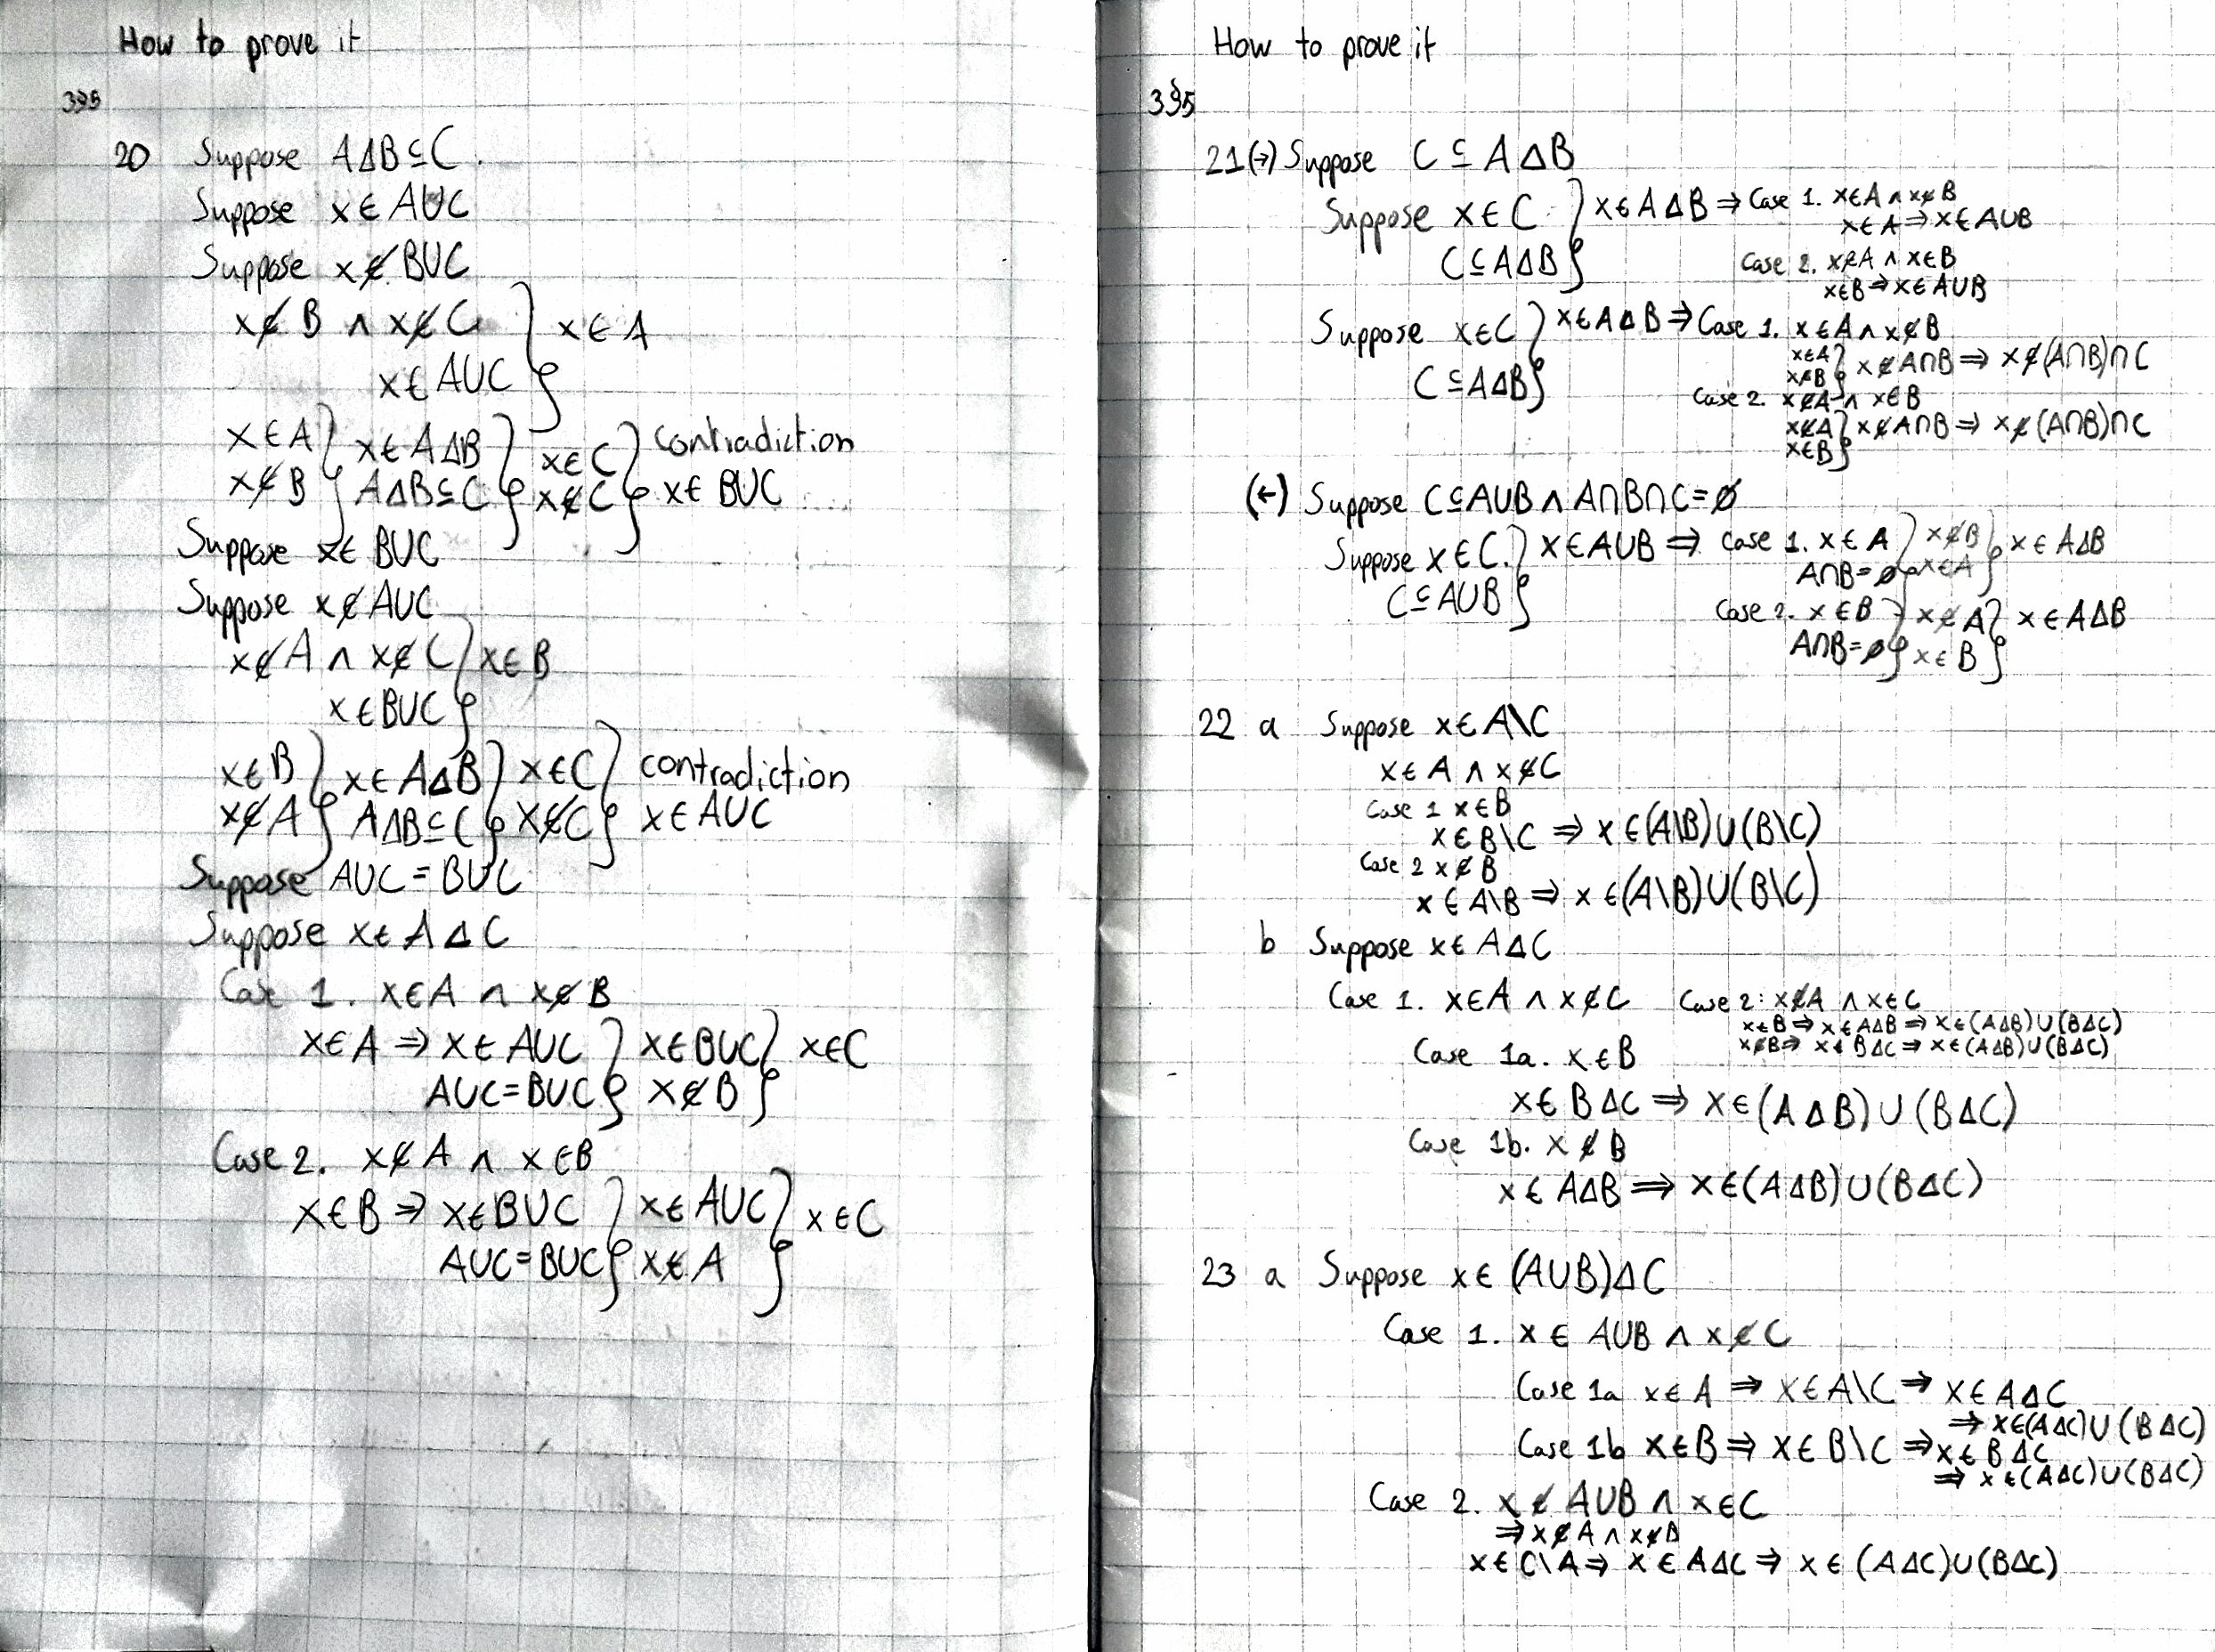 How to prove it
3§5
20 Suppose A∆B⊆C.
Suppose x∈A∪C
Suppose x∉B∪C
x∉B ∧ x∉C } x∈A
x∈A∪C
x∈A } x∈A∆B } x∈C } contradiction
x∉B } A∆B⊆C } x∉C } x∈B∪C
Suppose x∈B∪C
Suppose x∉A∪C
x∉A ∧ x∉C } x∈B
x∈B∪C
x∈B } x∈A∆B } x∈C } contradiction
x∉A } A∆B⊆C } x∉C } x∈A∪C
Suppose A∪C=B∪C
Suppose x∈A∆C
Case 1. x∈A ∧ x∉B
x∈A ⇒ x∈A∪C } x∈B∪C } x∈C
A∪C=B∪C } x∉B
Case 2. x∉A ∧ x∈B
x∈B ⇒ x∈B∪C } x∈A∪C } x∈C
A∪C=B∪C } x∉A
How to prove it
3§5
21(→) Suppose C⊆A∆B
Suppose x∈C } x∈A∆B ⇒ Case 1. x∈A ∧ x∉B
x∈A ⇒ x∈A∪B
C⊆A∆B } Case 2. x∉A ∧ x∈B
x∈B ⇒ x∈A∪B
Suppose x∈C } x∈A∆B ⇒ Case 1. x∈A ∧ x∉B
C⊆A∆B } x∈A x∉B } x∉A∩B ⇒ x∉(A∩B)∩C
Case 2. x∉A ∧ x∈B
x∉A x∈B } x∉A∩B ⇒ x∉(A∩B)∩C
(←) Suppose C⊆A∪B ∧ A∩B∩C=∅
Suppose x∈C. } x∈A∪B ⇒ Case 1. x∈A } x∉B } x∈A∆B
A∩B=∅ } x∈A
C⊆A∪B } Case 2. x∈B } x∉A } x∈A∆B
A∩B=∅ } x∈B
22 a Suppose x∈A\C
x∈A ∧ x∉C
Case 1 x∈B
x∈B\C ⇒ x∈(A\B)∪(B\C)
Case 2 x∉B
x∈A\B ⇒ x∈(A\B)∪(B\C)
b Suppose x∈A∆C
Case 1. x∈A ∧ x∉C Case 2: x∉A ∧ x∈C
x∈B ⇒ x∈A∆B ⇒ x∈(A∆B)∪(B∆C)
x∉B ⇒ x∈B∆C ⇒ x∈(A∆B)∪(B∆C)
Case 1a. x∈B
x∈B∆C ⇒ x∈(A∆B)∪(B∆C)
Case 1b. x∉B
x∈A∆B ⇒ x∈(A∆B)∪(B∆C)
23 a Suppose x∈(A∪B)∆C
Case 1. x∈A∪B ∧ x∉C
Case 1a x∈A ⇒ x∈A\C ⇒ x∈A∆C
⇒ x∈(A∆C)∪(B∆C)
Case 1b x∈B ⇒ x∈B\C ⇒ x∈B∆C
⇒ x∈(A∆C)∪(B∆C)
Case 2. x∉A∪B ∧ x∈C
⇒ x∉A ∧ x∉B
x∈C\A ⇒ x∈A∆C ⇒ x∈(A∆C)∪(B∆C)